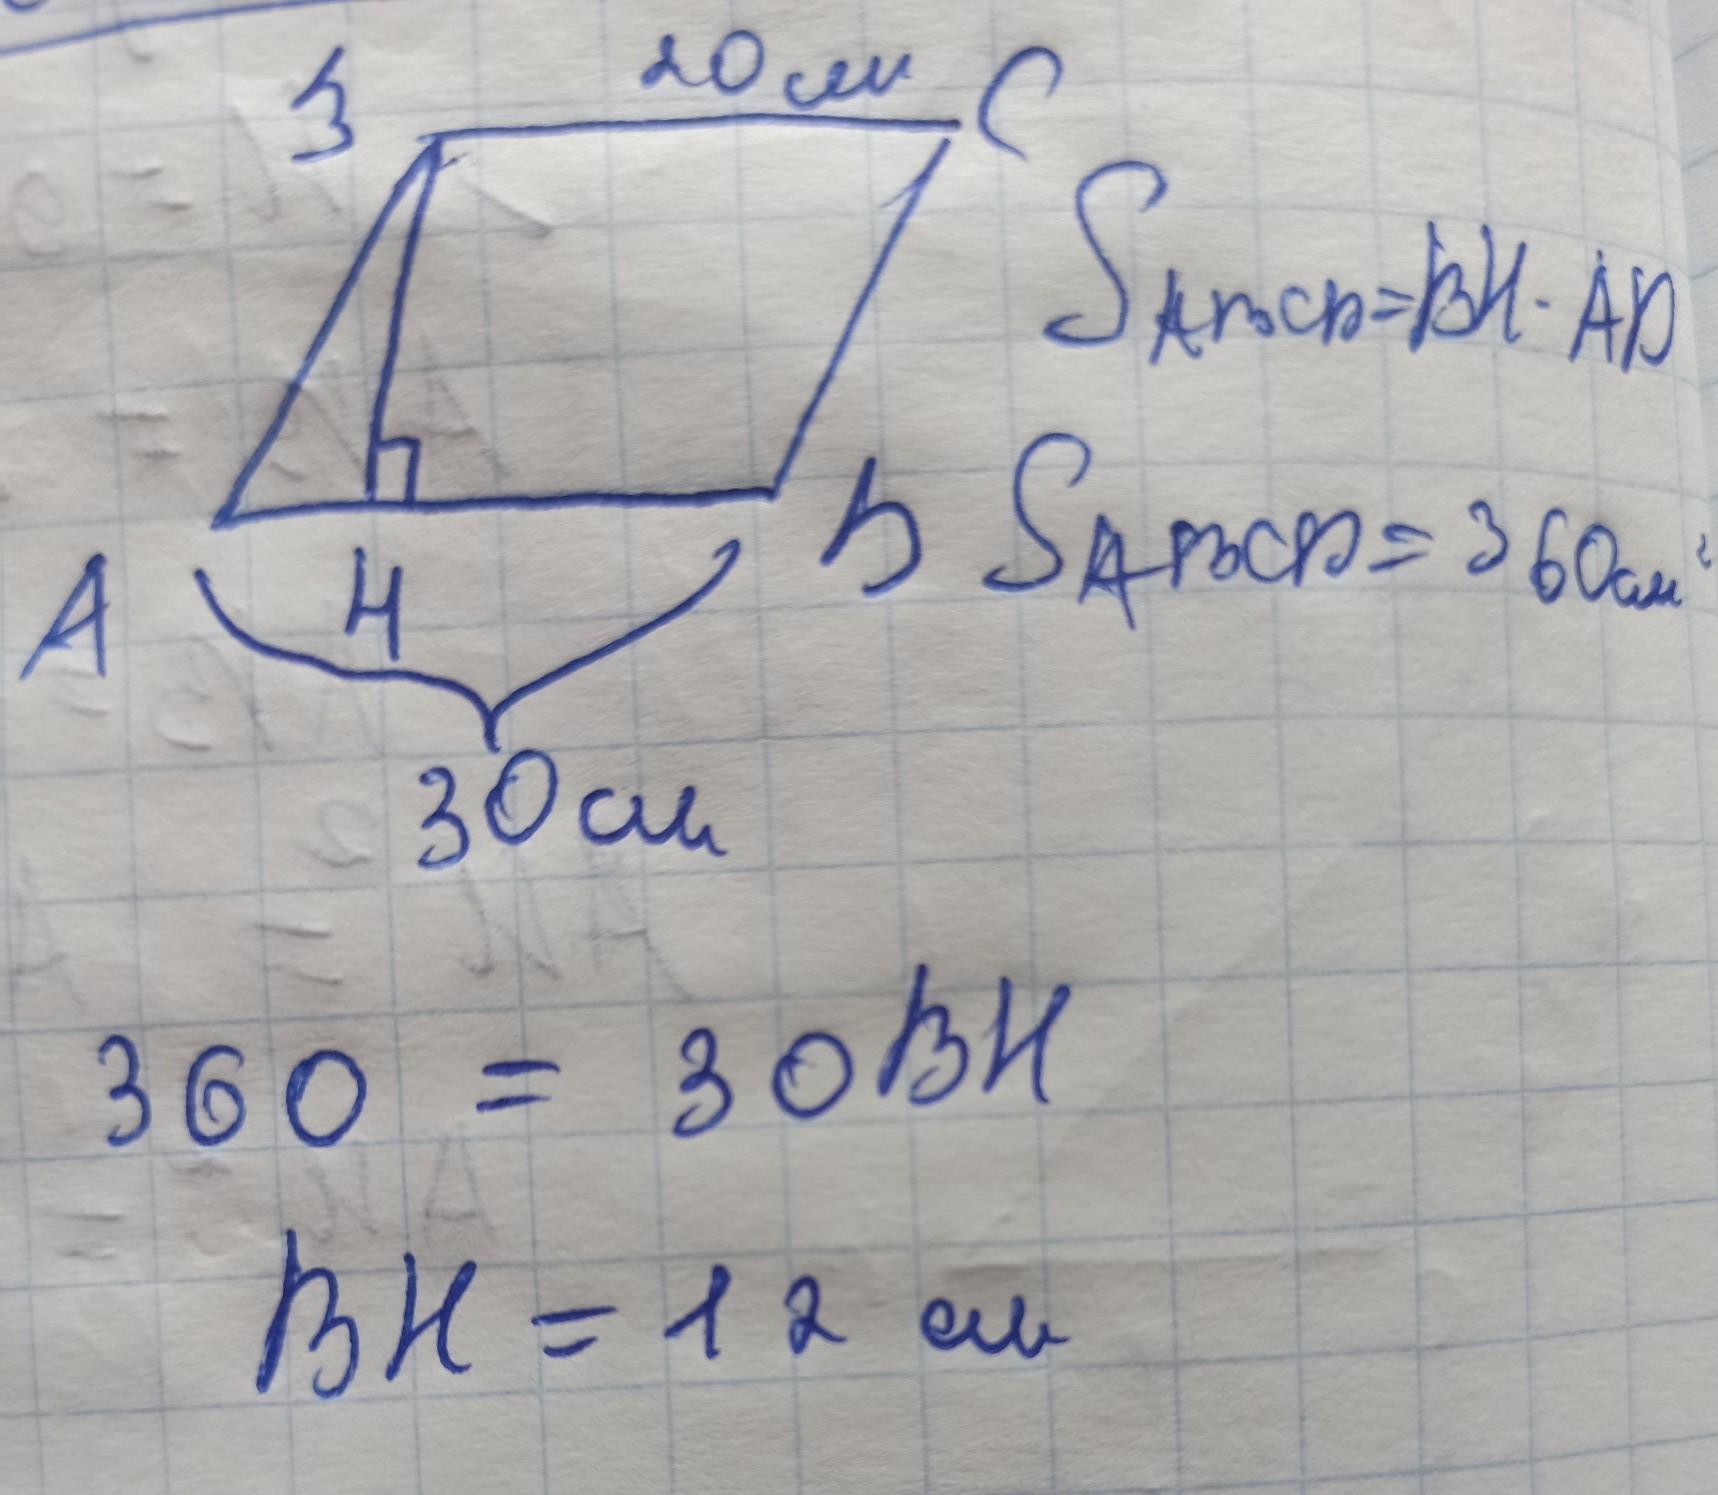 B 20 см C
S ABCD = BH · AD
A H D
S ABCD = 360 см²
30 см
360 = 30 BH
BH = 12 см